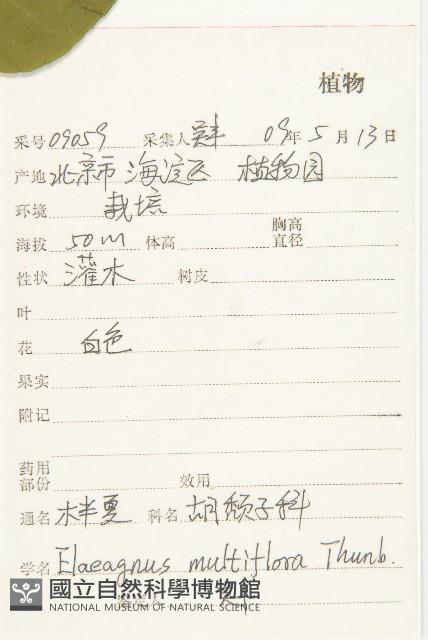 植物
采号 09059 采集人 09年 5月 13日
产地 北京市 海淀区 植物园
环境 栽培
海拔 50m 体高 胸高直径
性状 灌木 树皮
叶
花 白色
果实
附记
药用部份 效用
通名 木半夏 科名 胡颓子科
学名 Elaeagnus multiflora Thunb.
國立自然科學博物館
NATIONAL MUSEUM OF NATURAL SCIENCE